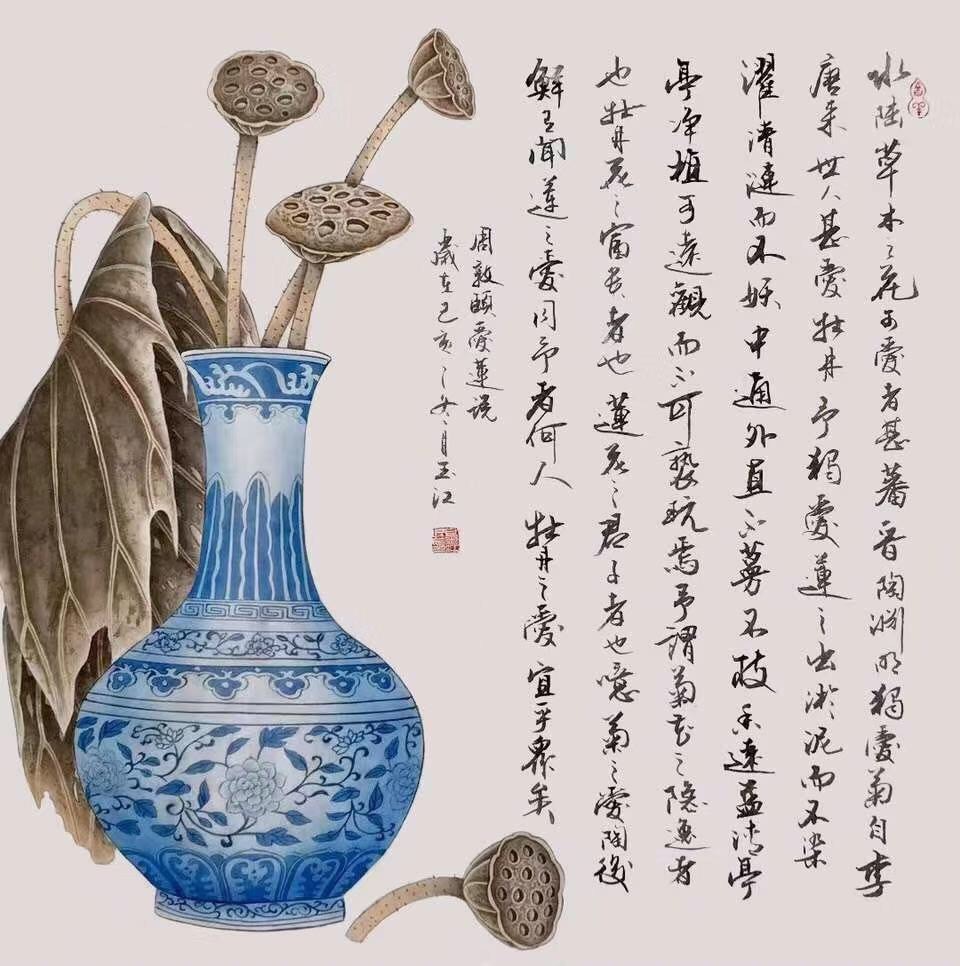 水陸草木之花可愛者甚蕃晉陶淵明獨愛菊自李
唐来世人甚愛牡丹予獨愛蓮之出淤泥而不染
濯清漣而不妖中通外直不蔓不枝香遠益清亭
亭净植可遠觀而不可褻玩焉予謂菊花之隱逸者
也牡丹花之富貴者也蓮花之君子者也噫菊之愛陶後
鮮有聞蓮之愛同予者何人牡丹之愛宜乎眾矣
周敦頤愛蓮説
歲在己亥之冬月玉江